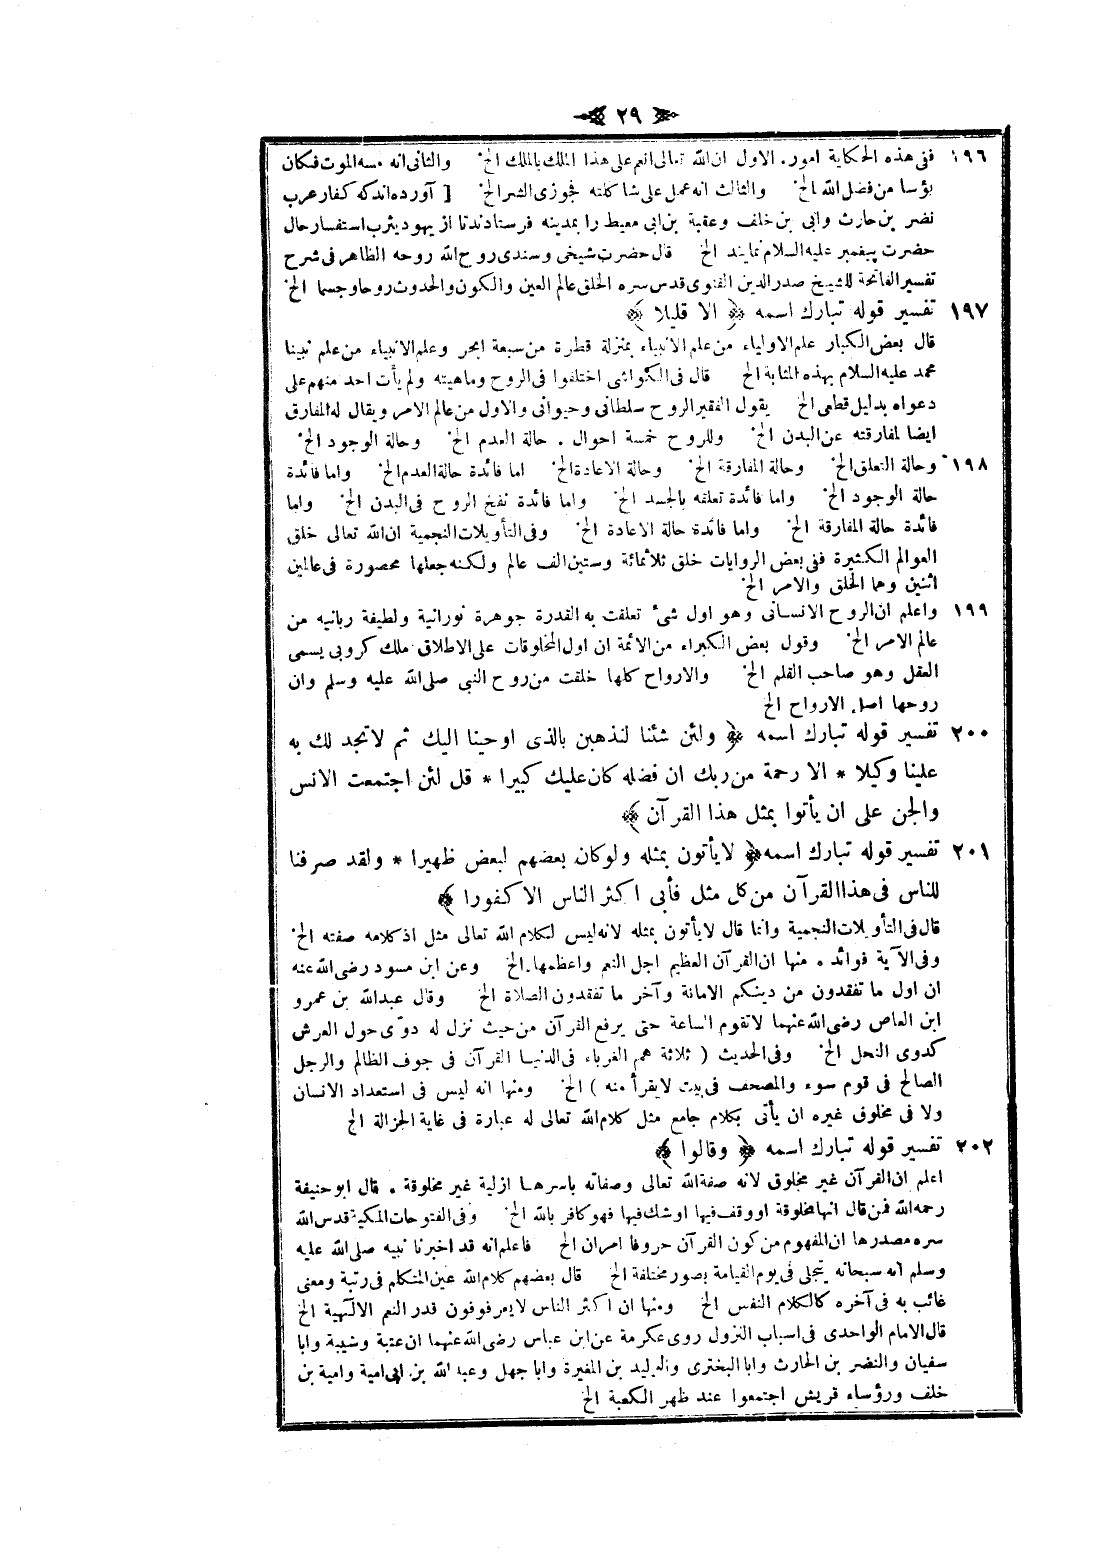 ٢٩
١٩٦ ففى هذه الحكاية امور. الاول ان الله تعالى انعم على هذا الملك بالملك الخ والثانى انه مسه الموت فكان
يؤسا من فضل الله الخ والثالث انه عمل على شاكلته فجوزى الشر الخ [ آورده اندكه كفار عرب
نضر بن حارث وابى بن خلف وعقبة بن ابى معيط را بمدينه فرستادند تا از يهود يثرب استفسار حال
حضرت پيغمبر عليه السلام نمايند الخ قال حضرت شيخى وسندى روح الله روحه الظاهر فى شرح
تفسير الفاتحة للشيخ صدر الدين القنوى قدس سره الخلق عالم العين والكون والحدوث روحا وجسما الخ
١٩٧ تفسير قوله تبارك اسمه ﴿ الا قليلا ﴾
قال بعض الكبار علم الاولياء من علم الانبياء بمنزلة قطرة من سبعة ابحر وعلم الانبياء من علم نبينا
محمد عليه السلام بهذه المثابة الخ قال فى الكواشى اختلفوا فى الروح وماهيته ولم يأت احد منهم على
دعواه بدليل قطعى الخ يقول الفقير الروح سلطانى وحيوانى والاول من عالم الامر ويقال له المفارق
ايضا لمفارقته عن البدن الخ وللروح خمسة احوال . حالة العدم الخ وحالة الوجود الخ
١٩٨ وحالة التعلق الخ وحالة المفارقة الخ وحالة الاعادة الخ اما فائدة حالة العدم الخ واما فائدة
حالة الوجود الخ واما فائدة تعلقه بالجسد الخ واما فائدة نفخ الروح فى البدن الخ واما
فائدة حالة المفارقة الخ واما فائدة حالة الاعادة الخ وفى التأويلات النجمية ان الله تعالى خلق
العوالم الكثيرة ففى بعض الروايات خلق ثلاثمائة وستين الف عالم ولكنه جعلها محصورة فى عالمين
اثنين وهما الخلق والامر الخ
١٩٩ واعلم ان الروح الانسانى وهو اول شئ تعلقت به القدرة جوهرة نورانية ولطيفة ربانيه من
عالم الامر الخ وقول بعض الكبراء من الائمة ان اول المخلوقات على الاطلاق ملك كروبى يسمى
العقل وهو صاحب القلم الخ والارواح كلها خلقت من روح النبى صلى الله عليه وسلم وان
روحها اصل الارواح الخ
٢٠٠ تفسير قوله تبارك اسمه ﴿ ولئن شئنا لنذهبن بالذى اوحينا اليك ثم لاتجد لك به
علينا وكيلا * الا رحمة من ربك ان فضله كان عليك كبيرا * قل لئن اجتمعت الانس
والجن على ان يأتوا بمثل هذا القرآن ﴾
٢٠١ تفسير قوله تبارك اسمه ﴿ لايأتون بمثله ولوكان بعضهم لبعض ظهيرا * ولقد صرفنا
للناس فى هذا القرآن من كل مثل فأبى اكثر الناس الا كفورا ﴾
قال فى التأويلات النجمية وانما قال لايأتون بمثله لانه ليس لكلام الله تعالى مثل اذ كلامه صفته الخ
وفى الآية فوائد . منها ان القرآن العظيم اجل النعم واعظمها الخ وعن ابن مسود رضى الله عنه
ان اول ما تفقدون من دينكم الامانة وآخر ما تفقدون الصلاة الخ وقال عبدالله بن عمرو
ابن العاص رضى الله عنهما لاتقوم الساعة حتى يرفع القرآن من حيث نزل له دوى حول العرش
كدوى النحل الخ وفى الحديث ( ثلاثة هم الغرباء فى الدنيا القرآن فى جوف الظالم والرجل
الصالح فى قوم سوء والمصحف فى بيت لايقرأ منه ) الخ ومنها انه ليس فى استعداد الانسان
ولا فى مخلوق غيره ان يأتى بكلام جامع مثل كلام الله تعالى له عبارة فى غاية الجزالة الخ
٢٠٢ تفسير قوله تبارك اسمه ﴿ وقالوا ﴾
اعلم ان القرآن غير مخلوق لانه صفة الله تعالى وصفاته باسرها ازلية غير مخلوقة . قال ابو حنيفة
رحمه الله فمن قال انها مخلوقة او وقف فيها او شك فيها فهو كافر بالله الخ وفى الفتوحات المكية قدس الله
سره مصدرها ان المفهوم من كون القرآن حروفا امران الخ فاعلم انه قد اخبرنا نبيه صلى الله عليه
وسلم انه سبحانه يتجلى فى يوم القيامة بصور مختلفة الخ قال بعضهم كلام الله عين المتكلم فى رتبة ومعنى
غائب به فى آخره كالكلام النفس الخ ومنها ان اكثر الناس لايعرفون قدر النعم الالهية الخ
قال الامام الواحدى فى اسباب النزول روى عكرمة عن ابن عباس رضى الله عنهما ان عتبة وشيبة وابا
سفيان والنضر بن الحارث وابا البخترى والوليد بن المغيرة وابا جهل وعبد الله بن ابى امية وامية بن
خلف ورؤساء قريش اجتمعوا عند ظهر الكعبة الخ